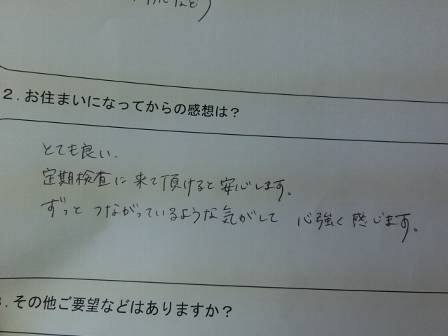 2. お住まいになってからの感想は？
とても良い.
定期検査に来て頂けると安心します。
ずっとつながっているような気がして 心強く感じます。
3. その他ご要望などはありますか？